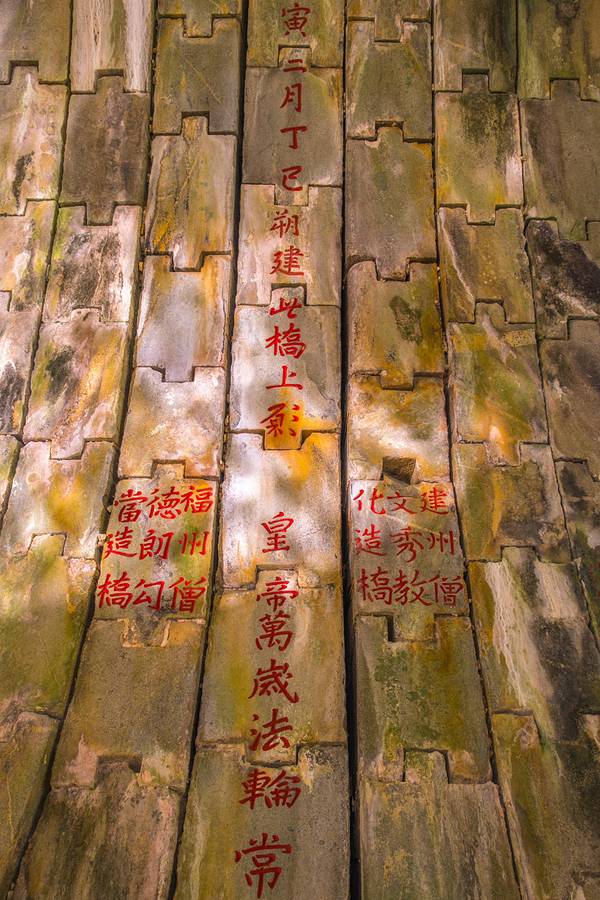 建州僧
文秀教
化造橋
寅二月丁巳朔建此橋上
皇帝萬歲法輪常
福州僧
德朗勾
當造橋